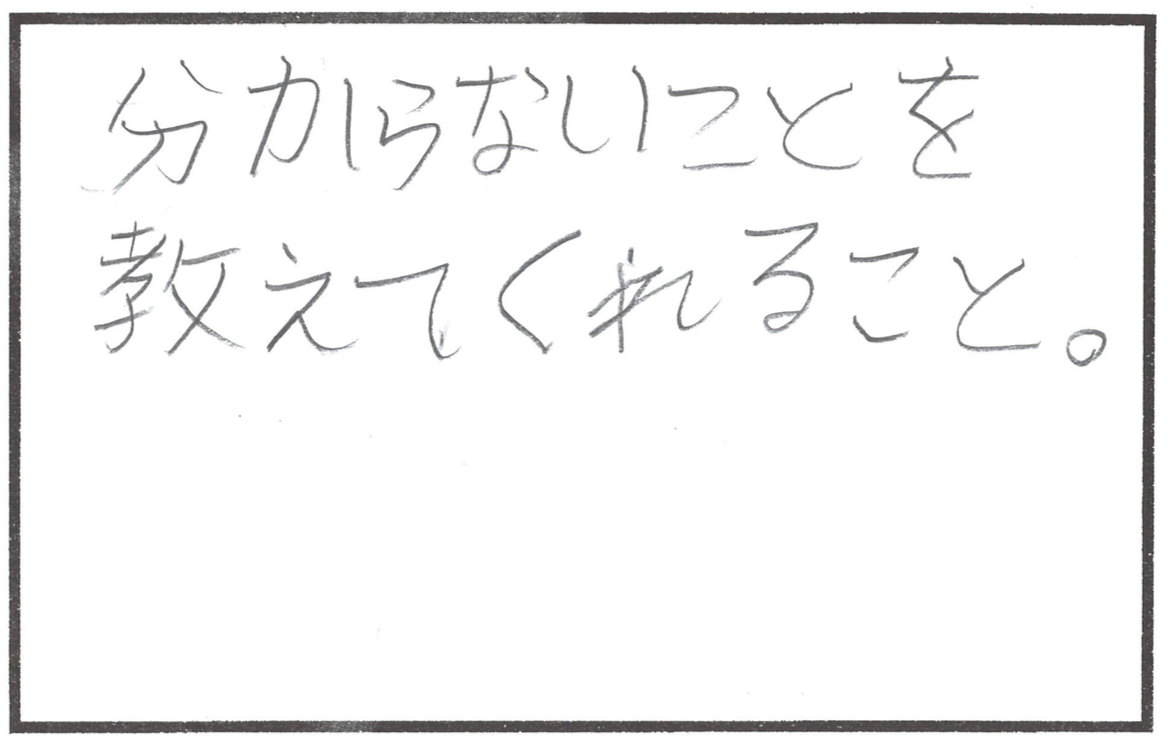 分からないことを
教えてくれること。